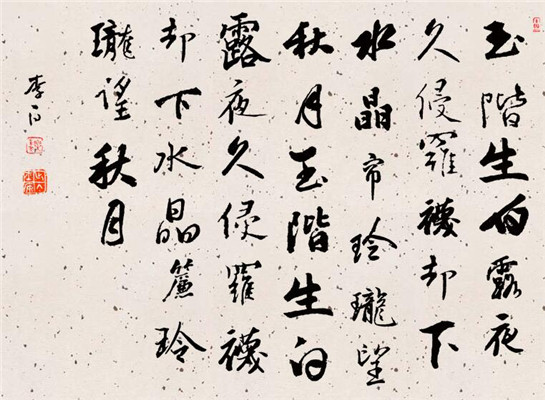 玉階生白露夜
久侵羅襪却下
水晶帘玲瓏望
秋月玉階生白
露夜久侵羅襪
却下水晶簾玲
瓏望秋月
李白